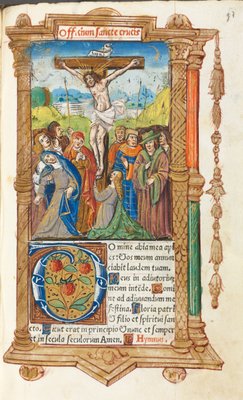 Officium sancte crucis
Domine labia mea ap
es: Os meum annun
ciabit laudem tuam.
Deus in adiutorium
meum intende. Domine
ne ad adiuvandum me
festina. Gloria patri
filio et spiritui san
cto. Sicut erat in principio et nunc et semper
et in secula seculorum Amen. Hymnus.